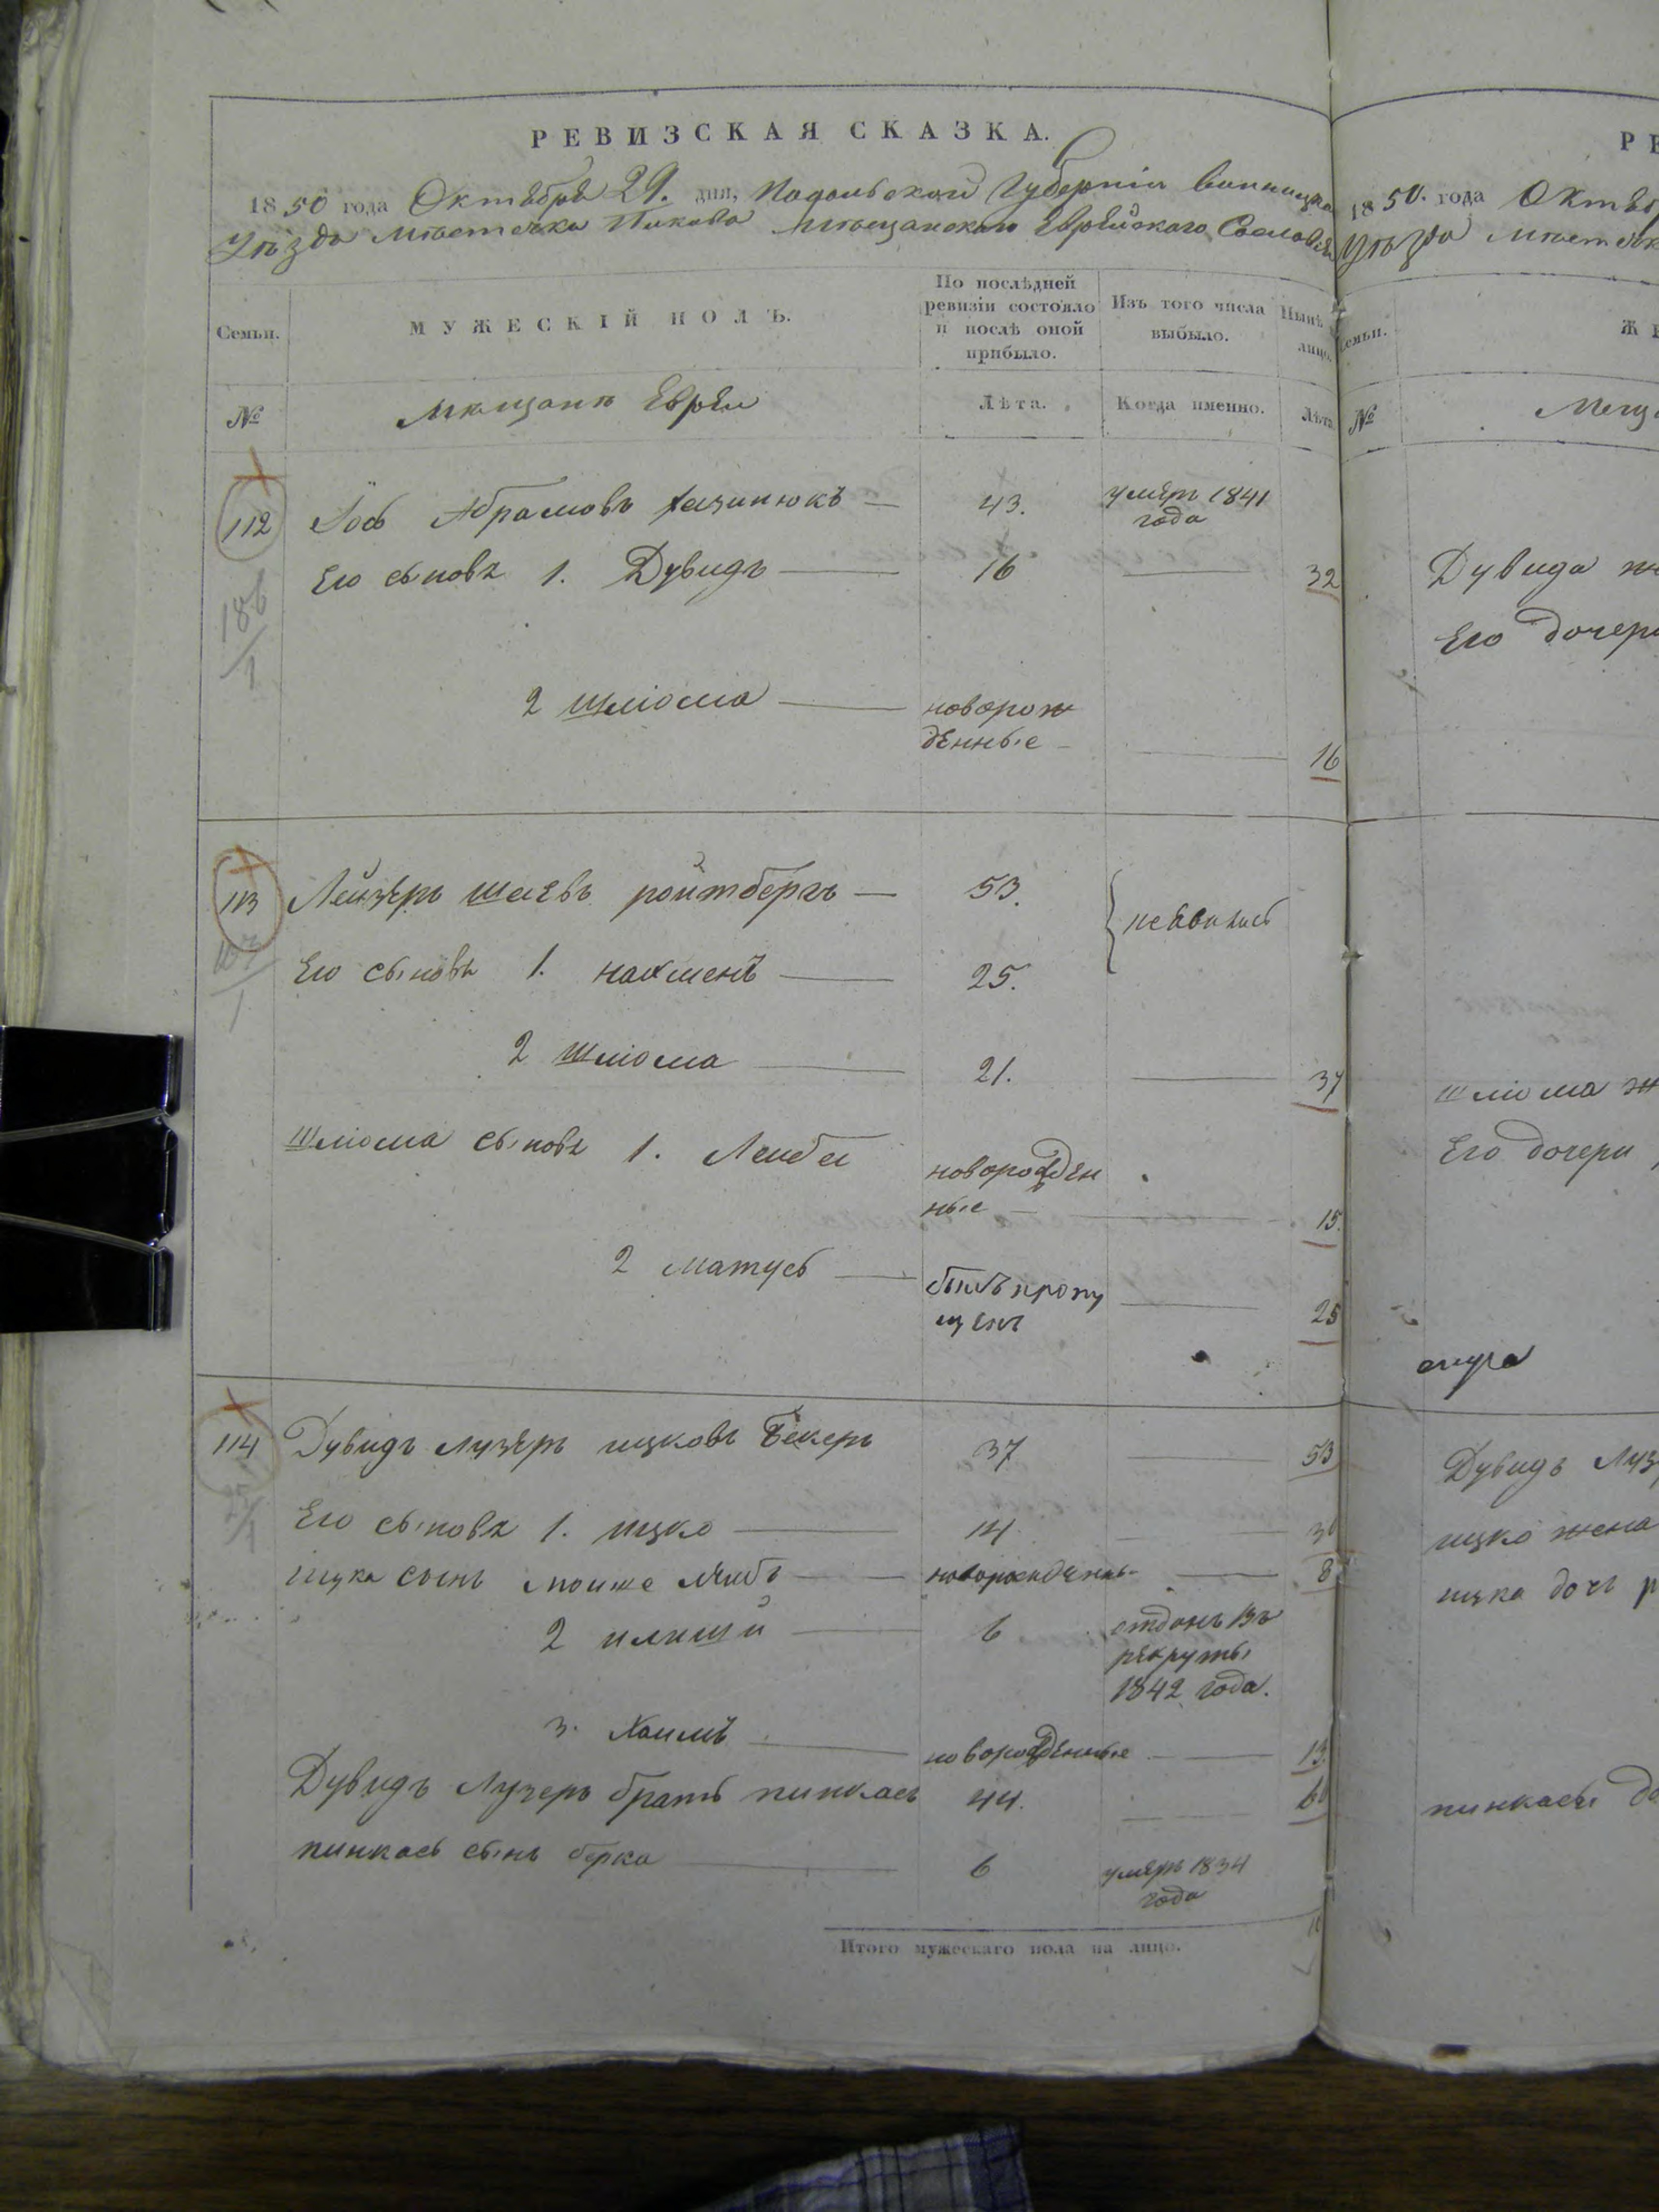 РЕВИЗСКАЯ СКАЗКА.
1850 года Октября 29. дня, Подольской Губернiи Винницка
Уѣзда Мѣстечка Пикова Мѣщанского Еврейского Сословiя
Семьи.
МУЖЕСКІЙ ПОЛЪ.
По послѣдней ревизіи состояло и послѣ оной прибыло.
Изъ того числа выбыло.
Нынѣ лицо.
№
Мѣщанѣ Евреи
Лѣта.
Когда именно.
Лѣта
112 Іось Абрамовъ — 43. умеръ 1841 года
Его сыновя 1. Дувидъ — 16 — 32
186/1
2 Шліома — новорож денные — 16
113 Лейзеръ Шаевъ ройтбергъ — 53. неявилась
Его сыновя 1. нахменъ — 25.
2 Шліома — 21. — 37
Шліома сыновя 1. Лейбы новорожден ные — 15.
2 Матусъ — былъ пропу щенъ — 25
114 Дувидъ Лузеръ ицковъ Бекеръ 37 — 53
Его сыновя 1. ицко — 14 — 30
ицка сынъ Мошке Лейбъ — новорожденны — 8
2 — 6 отданъ въ рекруты 1842 года.
3. Хаимъ — новорожденные — 13
Дувидъ Лузеръ братъ пинкасъ 44. — 60
пинкасъ сынъ берко — 6 умеръ 1834 года
Итого мужескаго пола на лицо.
РЕ
1850. года Октяб
Уѣзда Мѣстечк
Семьи.
Ж
№
Мещ
Дувида же
Его дочери
Шліома ж
Его дочери
Дувидъ Луз
ицко жена
ицка дочь р
пинкасъ до